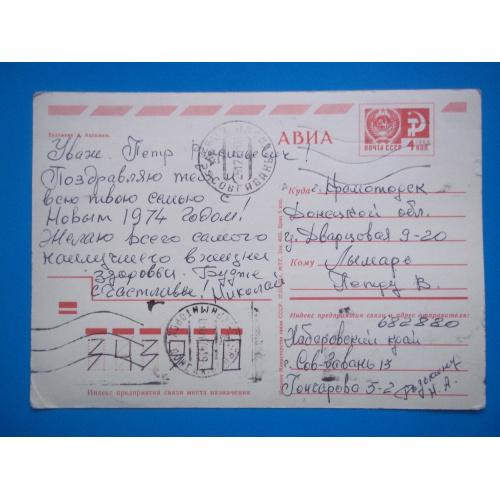 Художник А.
АВИА
ПОЧТА СССР
4 КОП.
Уваж. Петр
Поздравляю тебя и
всю твою семью с
Новым 1974 годом!
Желаю всего самого
наилучшего в жизни
Здоровья. Будьте
счастливы! Николай
Куда г. Краматорск
Донецкой обл.
ул. Дварцовая 9-20
Кому Лымарь
Петру В.
Индекс предприятия связи и адрес отправителя:
682880
Хабаровский край
г. Сов-Гавань 13
Гончарова 5-2
Н. А.
343
Индекс предприятия связи места назначения
СОВГАВАНЬ